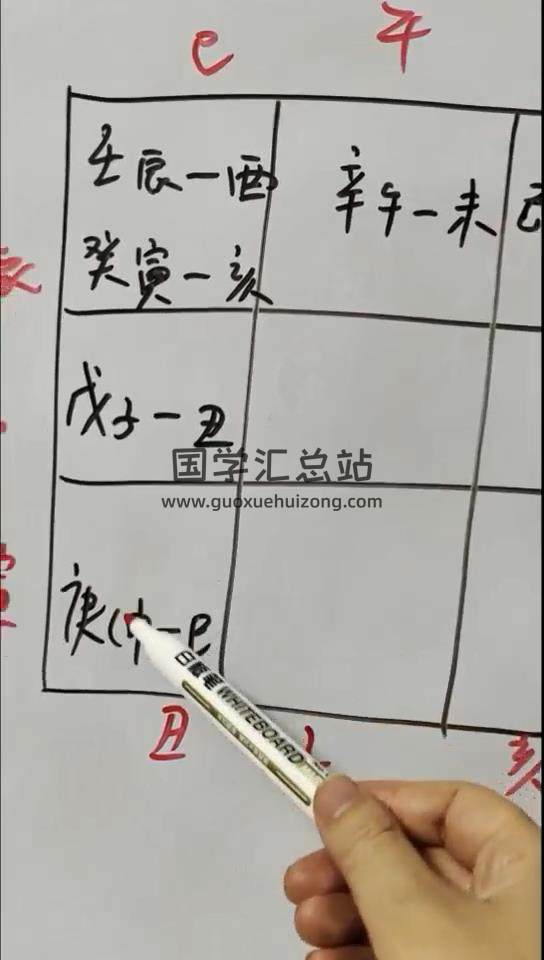 巳 午
壬辰—酉
癸寅—亥
辛午—未
戊子—丑
国学汇总站
www.guoxuehuizong.com
庚申—巳
白板笔 WHITEBOARD
丑
亥